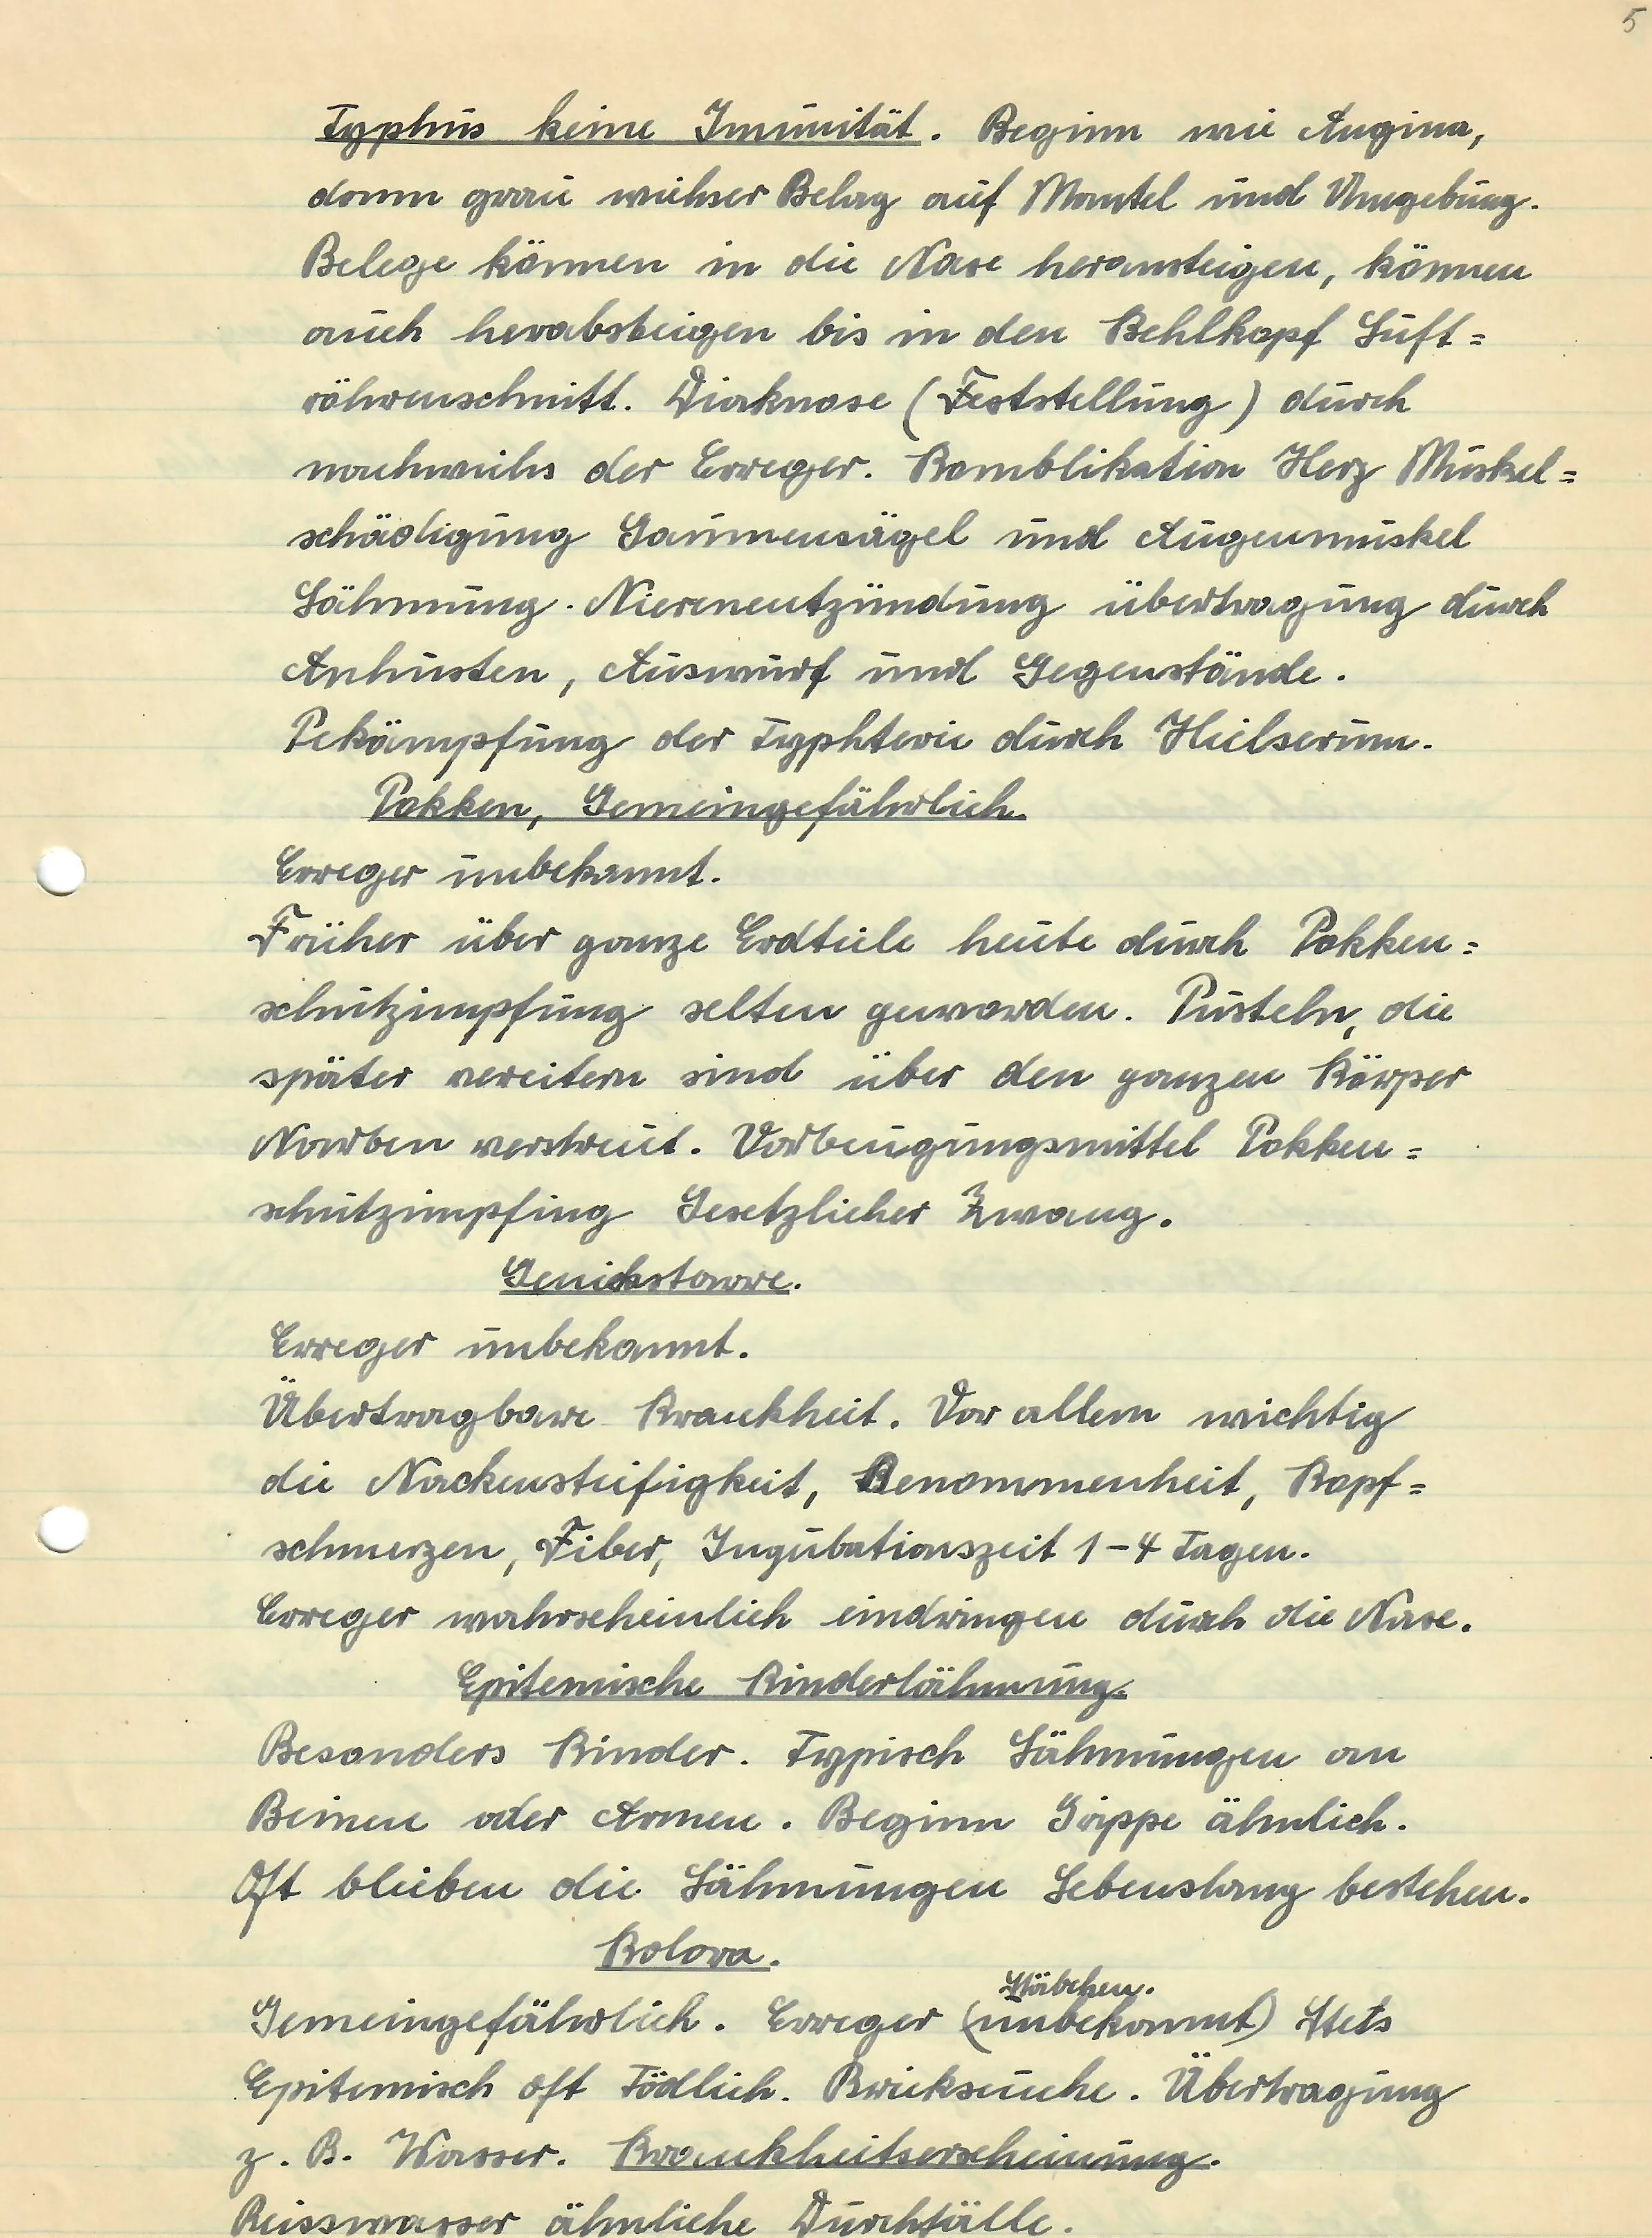 5
Typhus keine Imunität. Beginn wie Angina,
dann grau weihser Belag auf Mantel und Umgebung.
Belege können in die Nase heransteigen, können
auch herabsteigen bis in den Kehlkopf Luft=
röhrenschnitt. Diaknose (Feststellung) durch
nachweihs der Erreger. Komblikation Herz Muskel=
schädigung Gaumensägel und Augenmuskel
Lähmung. Nierenentzündung übertragung durch
Anhusten, Auswurf und Gegenstände.
Pekämpfung der Typhterie durch Heilserum.
Pokken, Gemeingefährlich.
Erreger unbekannt.
Früher über ganze Erdteile heute durch Pokken=
schutzimpfung selten geworden. Pusteln, die
später vereitern sind über den ganzen Körper
Narben verstreut. Vorbeugungsmittel Pokken=
schutzimpfing Gesetzlicher Zwang.
Genickstarre.
Erreger unbekannt.
Übertragbare Krankheit. Vor allem wichtig
die Nackensteifigkeit, Benommenheit, Kopf=
schmerzen, Fiber, Ingubationszeit 1-4 Tagen.
Erreger wahrscheinlich eindringen durch die Nase.
Epitemische Kinderlähmung.
Besonders Kinder. Typisch Lähmungen an
Beinen oder Armen. Beginn Grippe ähnlich.
Oft bleiben die Lähmungen Lebenslang bestehen.
Kolora.
Stäbchen.
Gemeingefährlich. Erreger (unbekannt) Stets
Epitemisch oft Tödlich. Krieksseuche. Übertragung
z. B. Wasser. Krankheitserscheinung.
Reisswasser ähnliche Durchfälle.